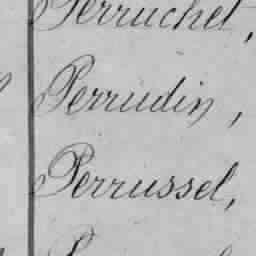 Perruchet,
Perrudin,
Perrussel,